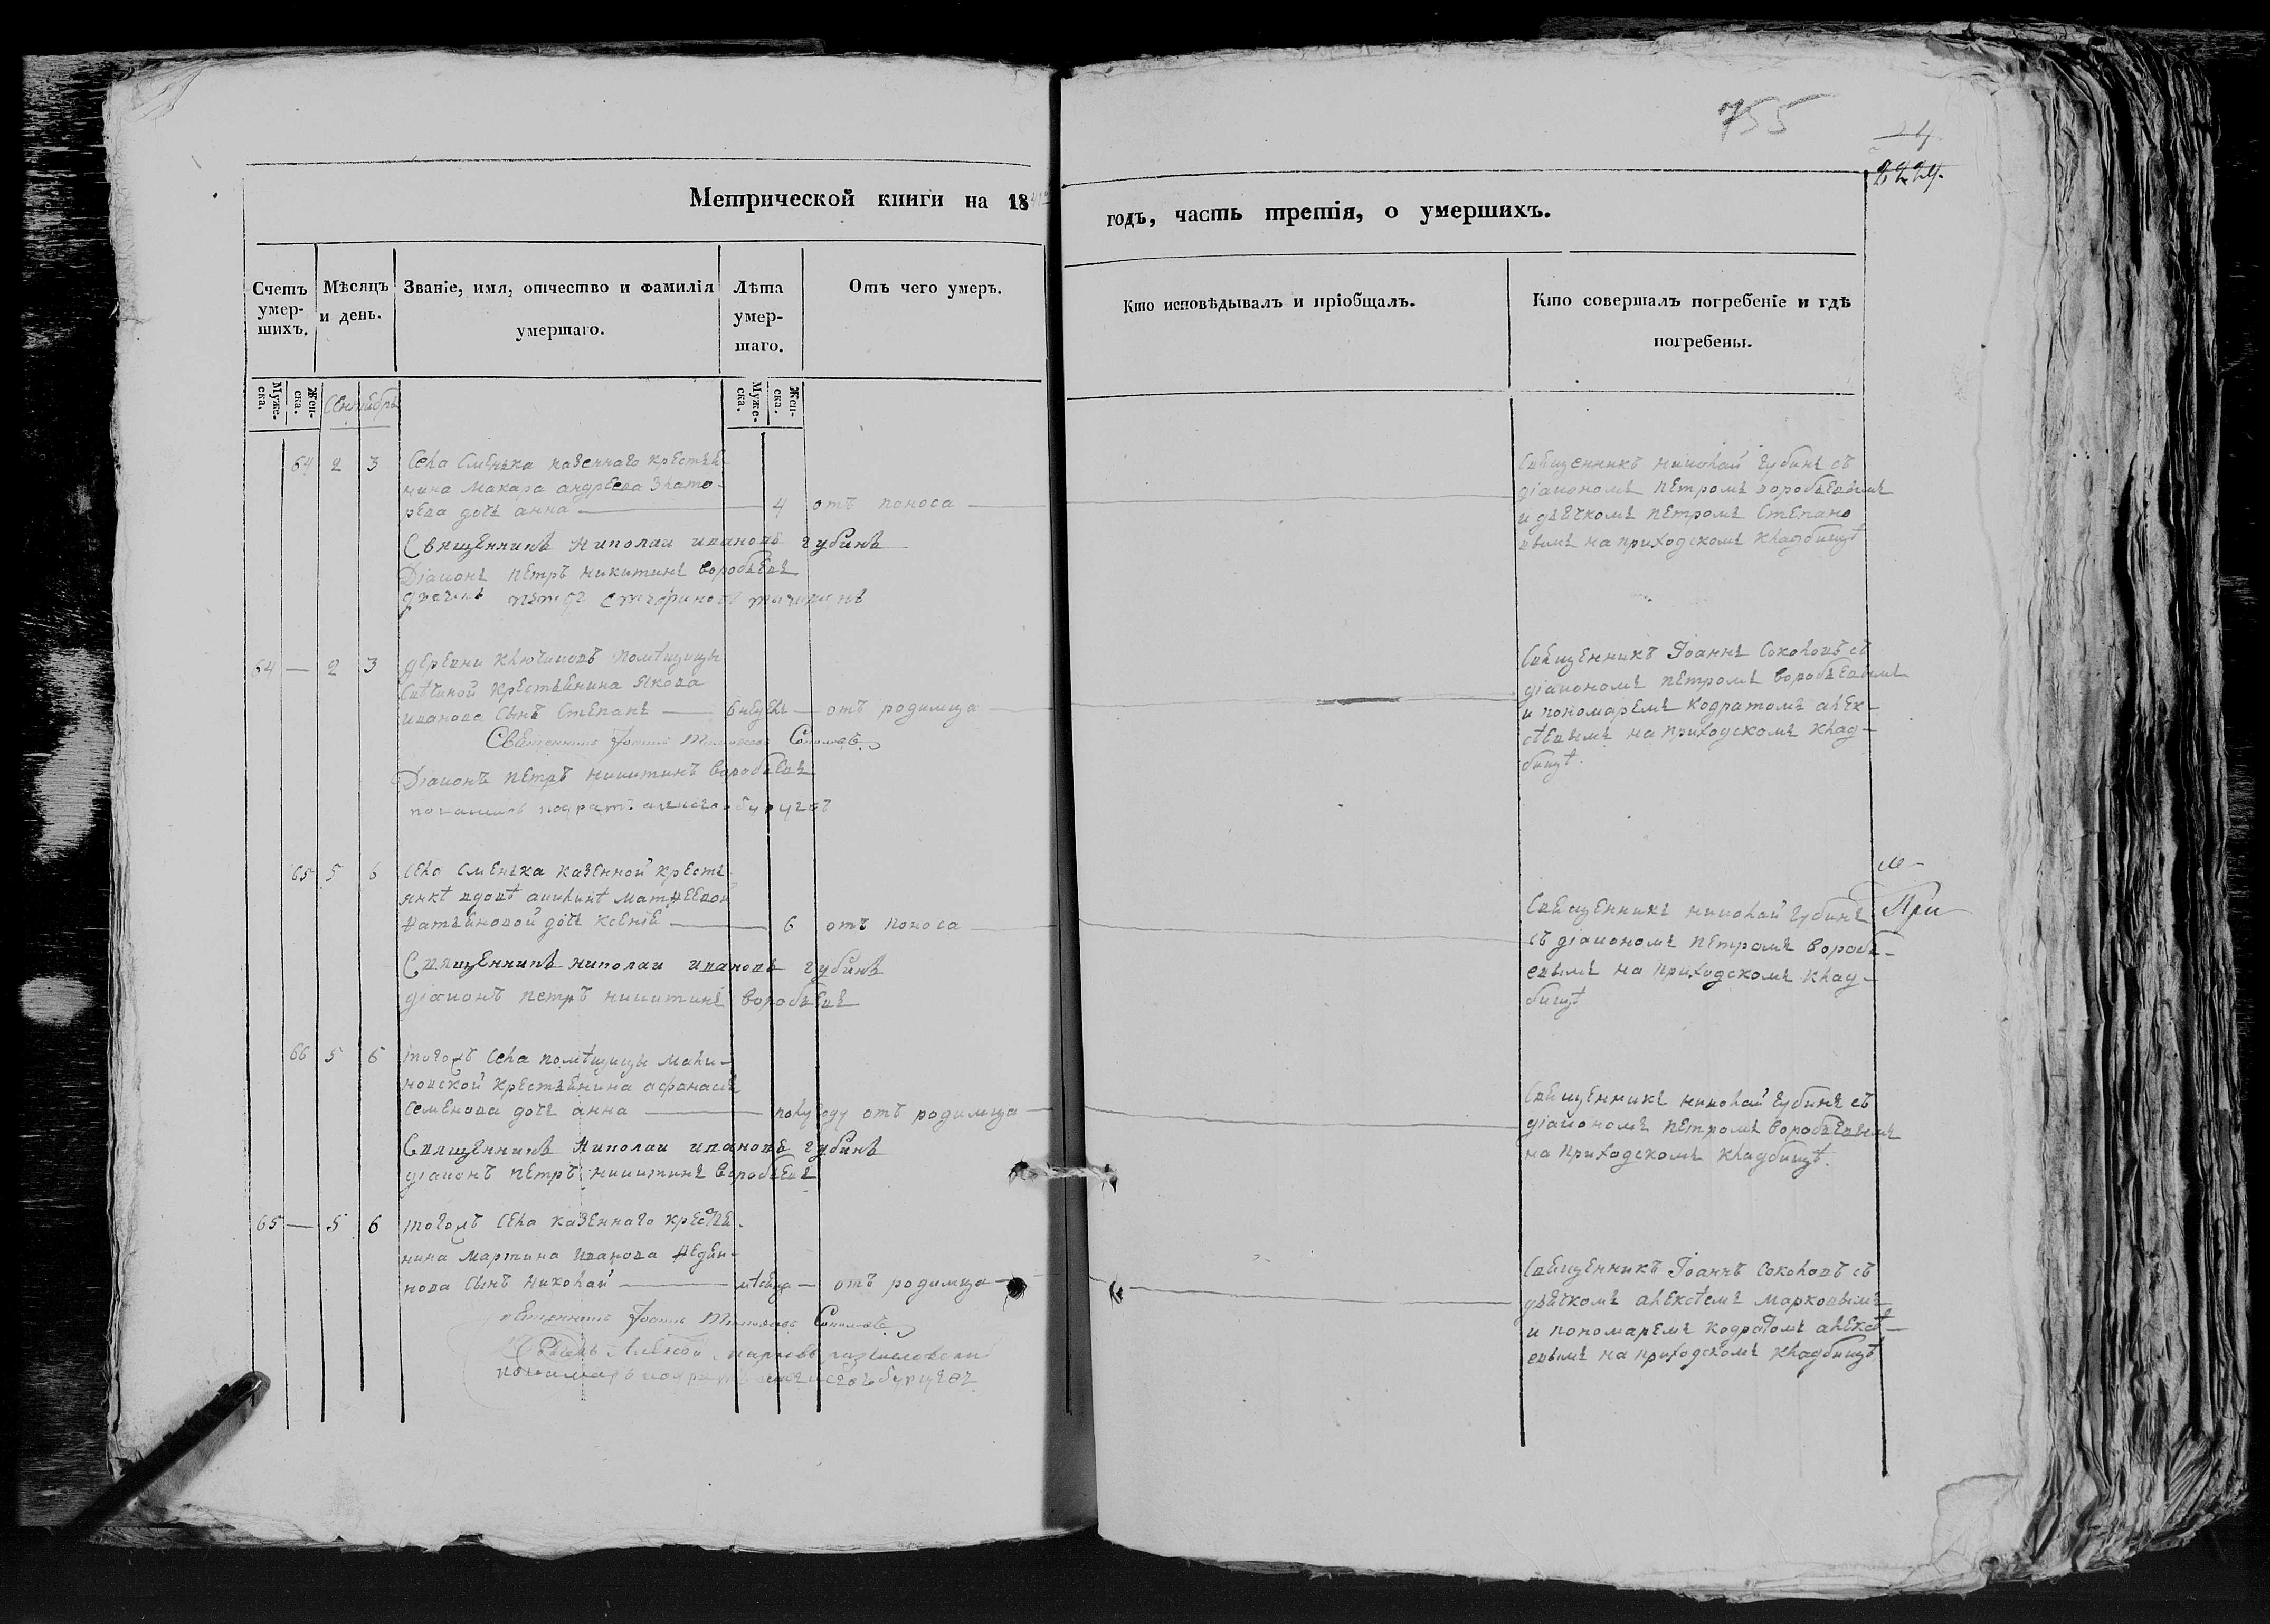 755
24
2224.
Метрической книги на 18
годъ, часть третія, о умершихъ.
Счетъ умер-шихъ.
Мѣсяцъ и день.
Званіе, имя, отчество и фамилія умершаго.
Лѣта умер-шаго.
Отъ чего умеръ.
Кто исповѣдывалъ и пріобщалъ.
Кто совершалъ погребеніе и гдѣ погребены.
Муже-ска.
Жен-ска.
Сентябрь
Муже-ска.
Жен-ска.
64 2 3 Села Сменька казеннаго крестья-
нина Макара андреева Злато-
рева дочь анна 4 отъ поноса
Священникъ Николай ивановъ губинъ
Діаконъ петръ никитинъ воробьевъ
дьячекъ петръ
Священникъ николай губинъ съ
діакономъ петромъ воробьевымъ
и дьячкомъ петромъ Степано
вымъ на приходскомъ кладбищѣ
64 — 2 3 деревни ключиковъ помѣщицы
крестьянина Якова
иванова сынъ Степанъ 6 недель отъ родимца
Священникъ Іоаннъ Соколовъ
Діаконъ петръ никитинъ воробьевъ
пономарь кодратъ
Священникъ Іоаннъ Соколовъ съ
діакономъ петромъ воробьевымъ
и пономаремъ кодратомъ алек-
сѣевымъ на приходскомъ клад-
бищѣ.
65 5 6 села сменька казенной кресть
янкѣ вдовѣ акилинѣ матфеевой
дочь ксенія 6 отъ поноса
Священникъ николай ивановъ губинъ
діаконъ петръ никитинъ воробьевъ
Священникъ николай губинъ
съ діакономъ петромъ воробь-
евымъ на приходскомъ клад-
бищѣ
При
66 5 6 тогожъ села помѣщицы мали-
новской крестьянина афанасья
семенова дочь анна полугоду отъ родимца
Священникъ Николай ивановъ губинъ
діаконъ петръ никитинъ воробьевъ
Священникъ николай губинъ съ
діакономъ петромъ воробьевымъ
на приходскомъ кладбищѣ.
65 — 5 6 тогожъ села казеннаго крестья-
нина мартина иванова федя-
кова сынъ николай мѣсяца отъ родимца
Священникъ Іоаннъ Соколовъ
Алексѣй Марковъ
пономарь кодратъ
Священникъ Іоаннъ Соколовъ съ
дьячкомъ алексѣемъ марковымъ
и пономаремъ кодратомъ алексѣ-
евымъ на приходскомъ кладбищѣ